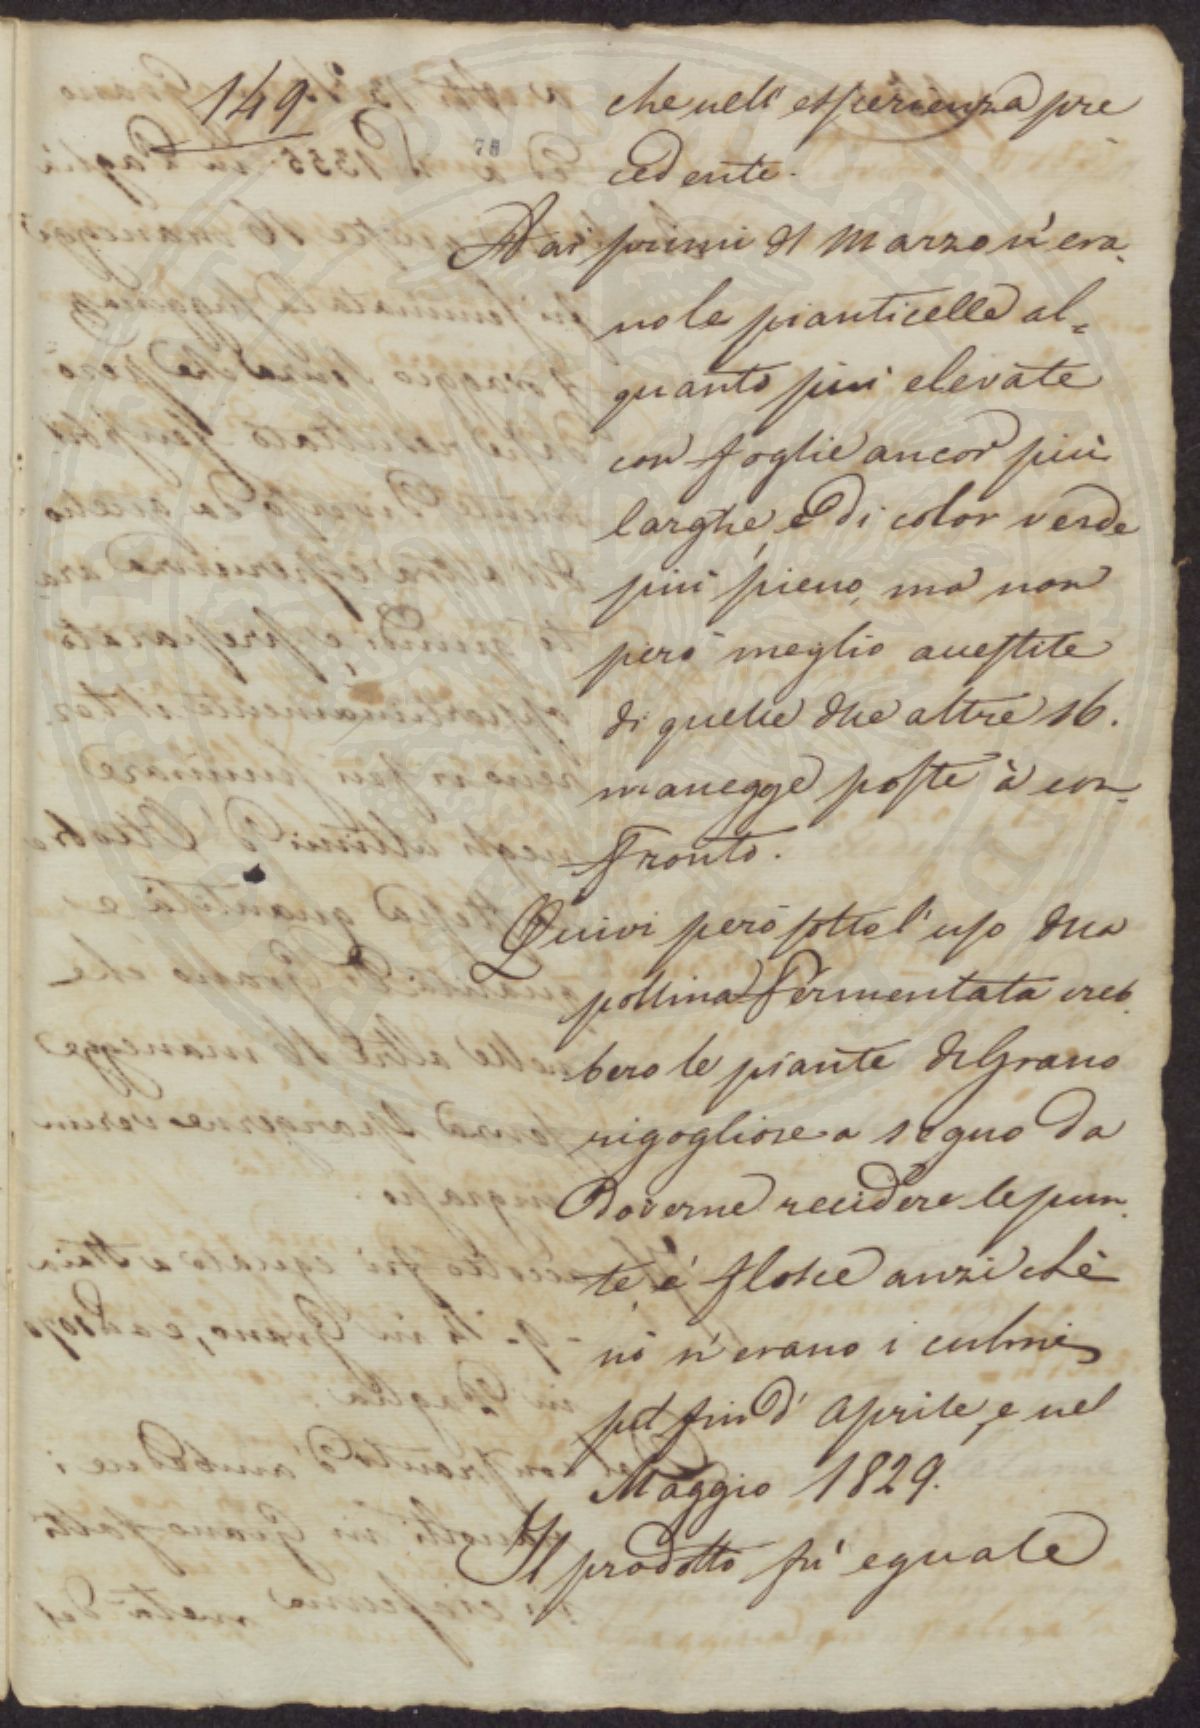 149
78
che nell' esperienza pre
cedente.
Ai primi di Marzo v'era-
no le pianticelle al=
quanto più elevate
con foglie ancor più
larghe, e di color verde
più pieno, ma non
però meglio avestite
di quelle delle altre 16.
manegge poste à con-
fronto.
Quivi però sotto l'uso della
pollina fermentata creb-
bero le piante di Grano
rigogliose a segno da
doverne recidere le pun-
te é flosce anzi chè
nò n'erano i culmi
pel fin d' Aprile, e nel
Maggio 1829.
Il prodotto fù eguale